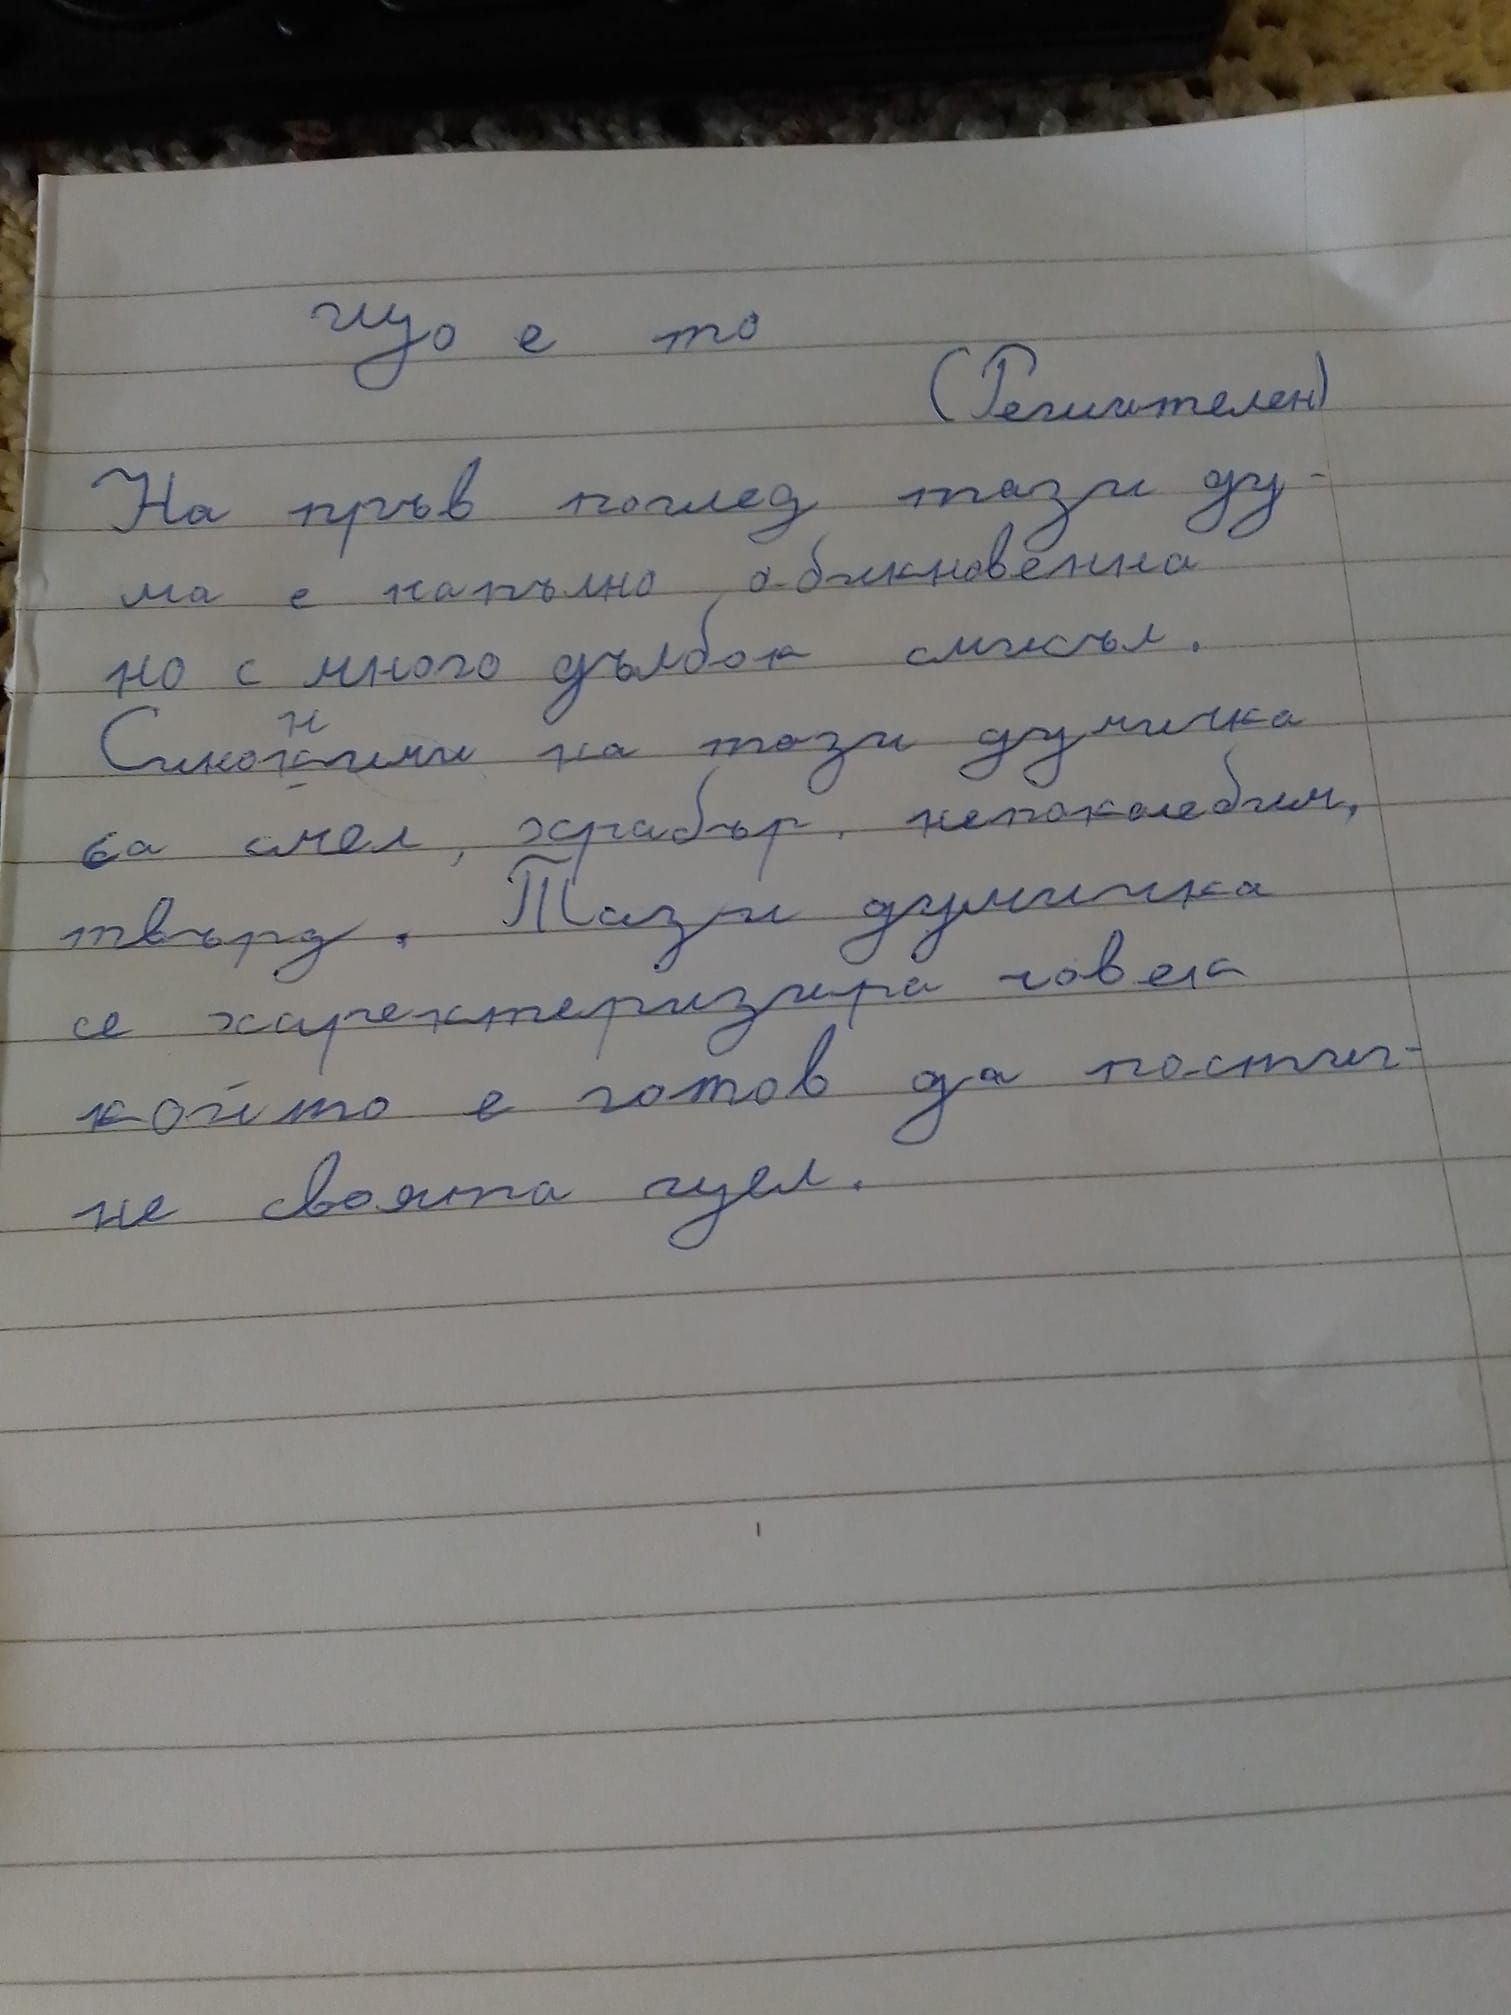 що е то
(Решителен)
На пръв поглед тази ду-
ма е напълно обикновенна
но с много дълбок смисъл.
Синоними на тази думичка
са смел, храбър, непоколебим,
твърд. Тази думичка
се харектеризира човека
който е готов да постиг-
не своята цел.